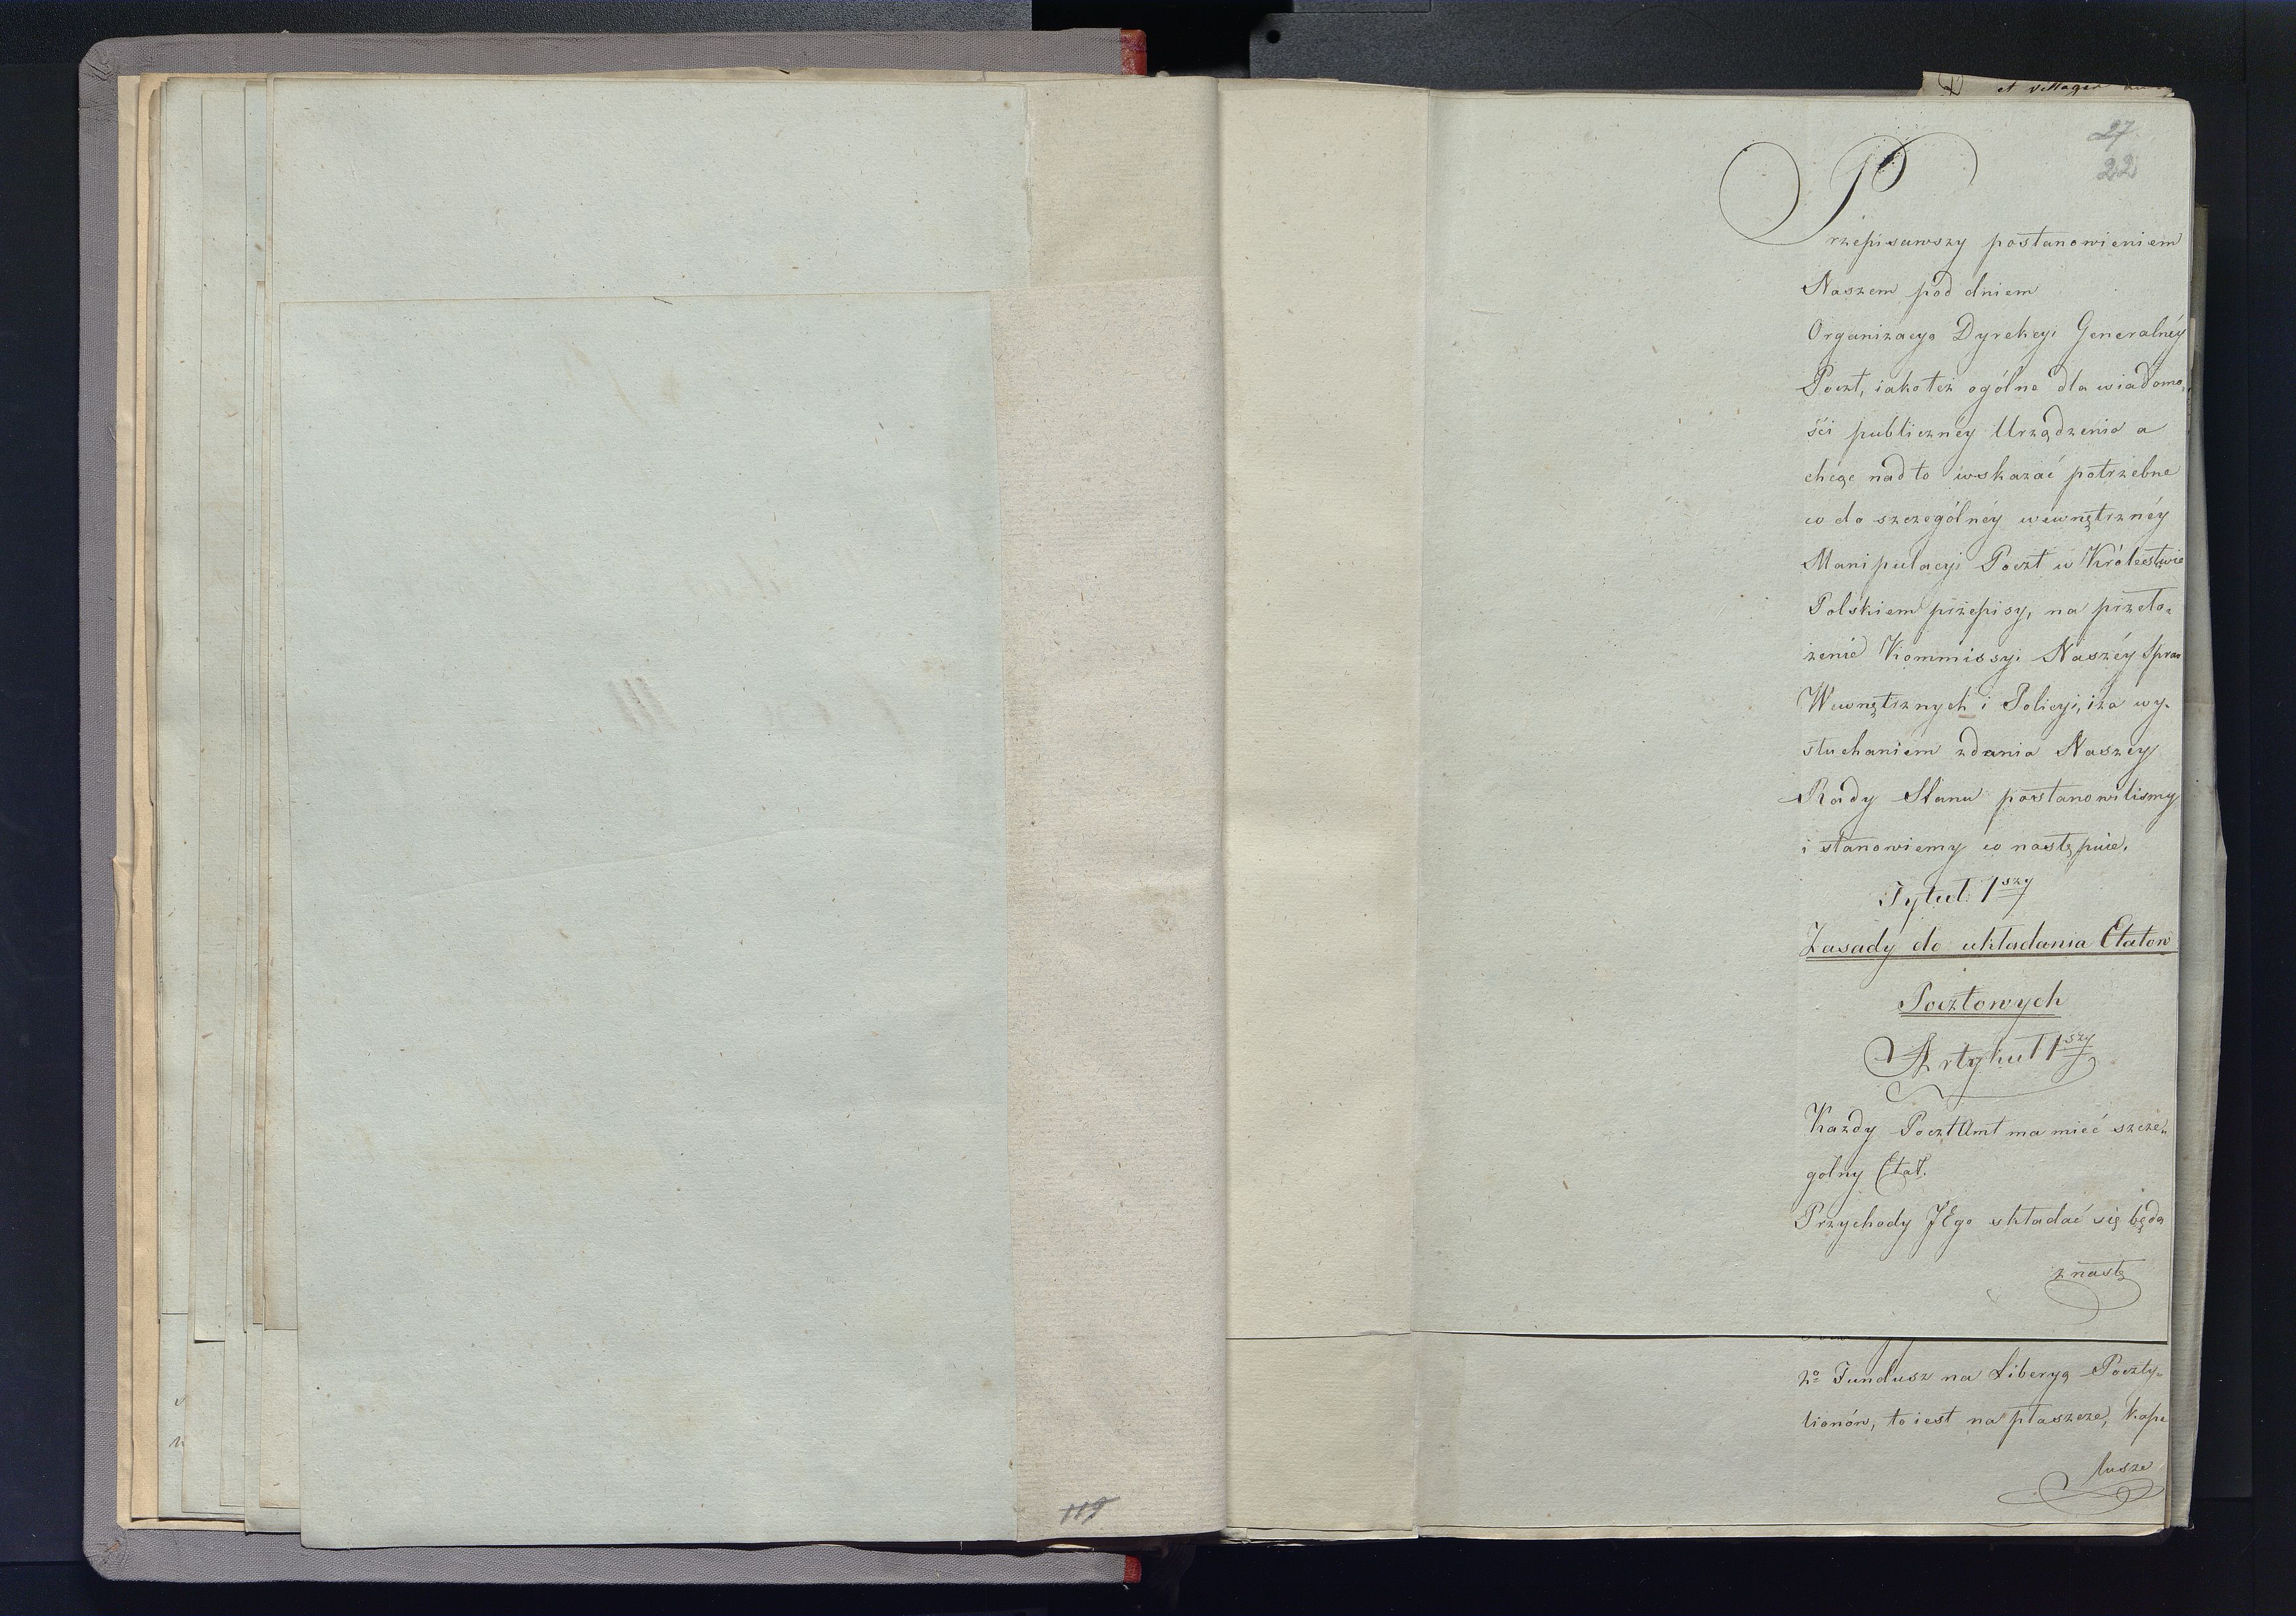 et villages
27
22
Przepisawszy postanowieniem
Naszem pod dniem
Organizacyo Dyrekcyi Generalnéy
Poczt, iakoteż ogólne dla wiadomo-
ści publicznéy Urządzenia a
chcąc nadto wskazać potrzebne
co do szczególnéy wewnętrznéy
Manipulacyi Poczt w Królestwie
Polskiem przepisy, na przeło-
żenie Kommissyi Naszéy Spraw
Wewnętrznych i Policyi, i za wy-
słuchaniem zdania Naszéy
Rady Stanu postanowilismy
i stanowiemy co następuie.
Tytuł 1szy
Zasady do układania Etatow
Pocztowych
Artykuł 1szy
Każdy PocztAmt ma mieć szcze-
golny Etat.
Przychody JEgo składać się będą
z nastę
2o Fundusz na Liberyą Poczty-
lionów, to iest na płaszcze, Kape
lusze
119